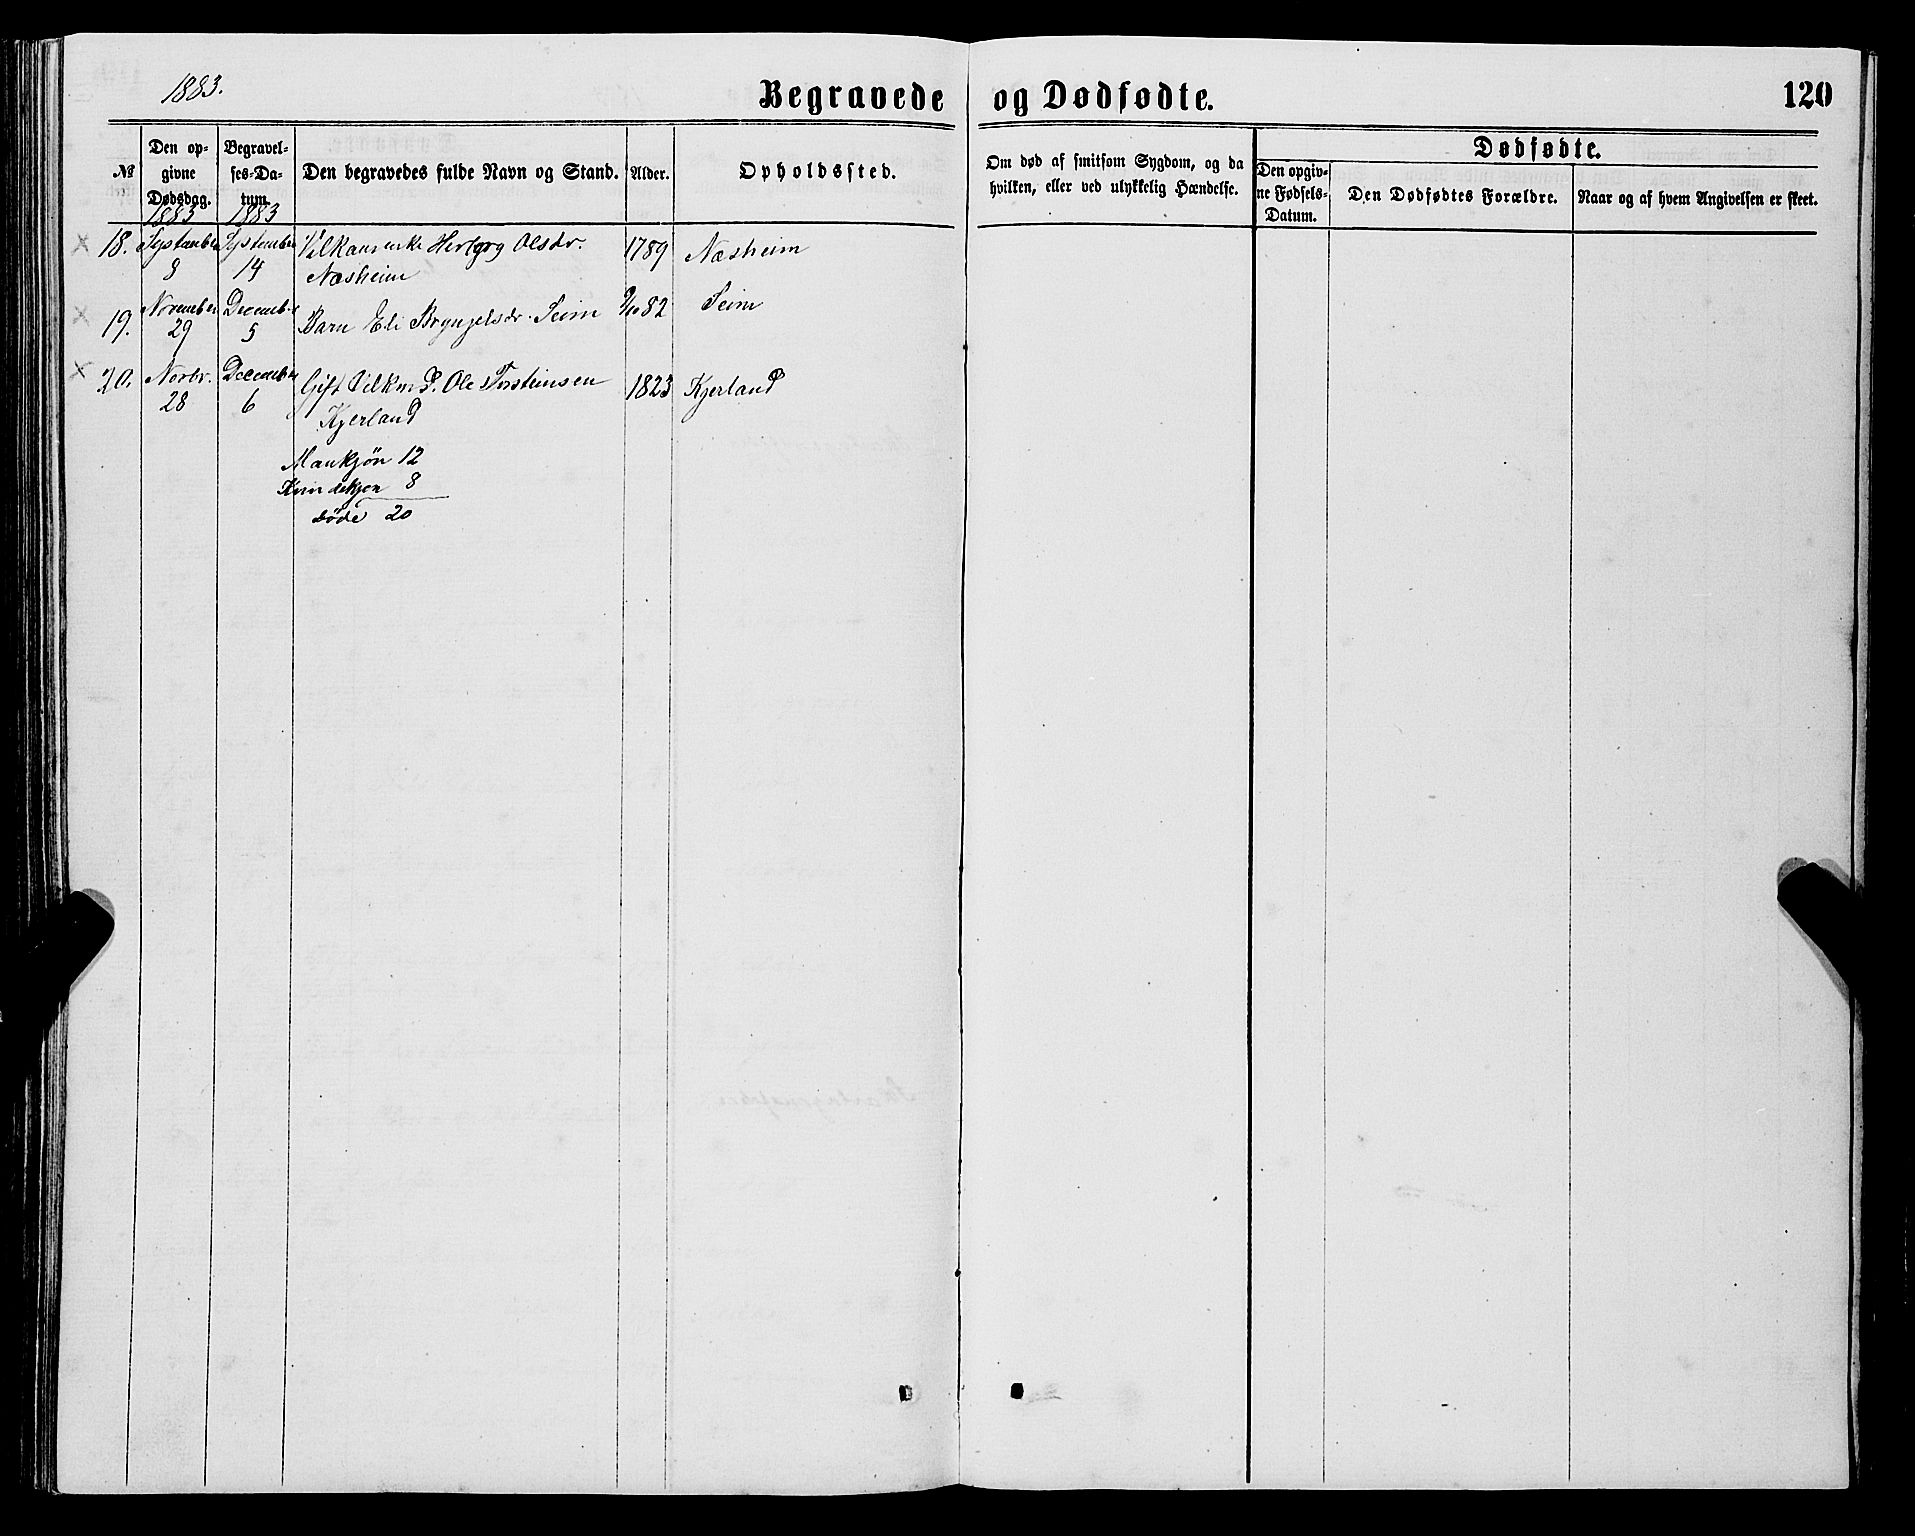 1883.
Begravede og Dødfødte.
120
№
Den op-
givne
Dødsdag.
Begravel-
ses-Da-
tum.
Den begravedes fulde Navn og Stand.
Alder.
Opholdssted.
Om død af smitsom Sygdom, og da
hvilken, eller ved ulykkelig Hændelse.
Dødfødte.
Den opgiv-
ne Fødsels-
Datum.
Den Dødfødtes Forældre.
Naar og af hvem Angivelsen er skeet.
1883 1883
× 18. September 8 September 14 Herborg Olsdr. 1789 Næsheim
Næsheim
× 19. November 29 December 5 Barn Eli Bryngelsdr. Seim 9/10 82 Seim
× 20. Novbr. 28 December 6 Gift Ole Torsteinsen 1823 Kjerland
Kjerland
Mankjön 12
Kvindekjön 8
døde 20